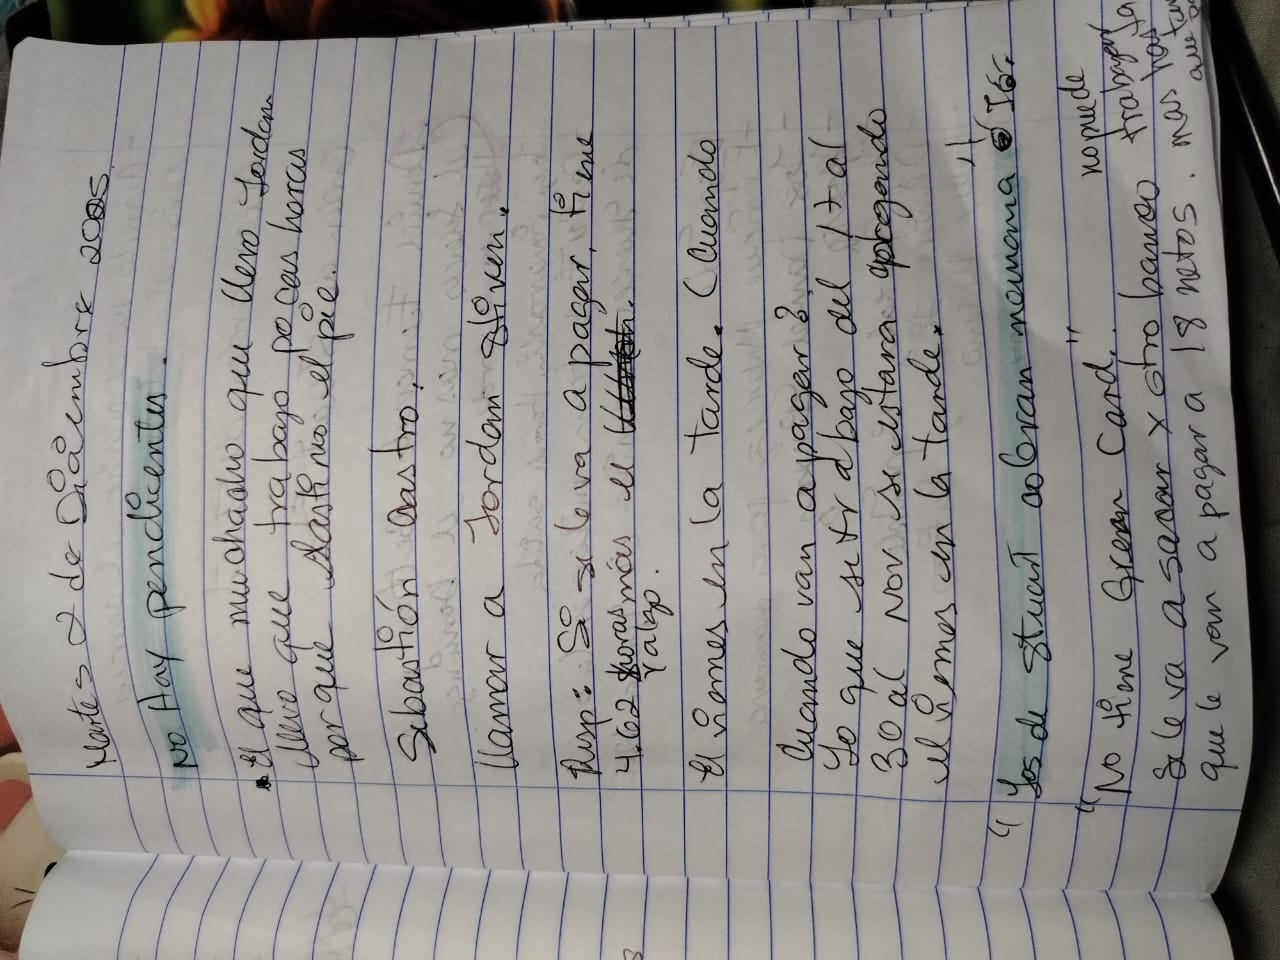 Martes 2 de Diciembre 2005.
No Hay pendientes.
El que muchacho que llevo Jordan
llevo que trabajo pocas horas
porque lastimo el pie.
Sebastián Castro.
Llamar a Jordan
Resp: Si se le va a pagar, tiene
4.62 horas más el
Y algo.
El viernes en la tarde. (Cuando
Cuando van a pagar?
Lo que se trabajo del 17 al
30 al Nov se estara pagando
el viernes en la tarde.
"Los de stuart cobran nomoma
"No tiene Green Card."
no puede
trabajar
Se le va a sacar x otro banco
que le van a pagar a 18 netos. mas